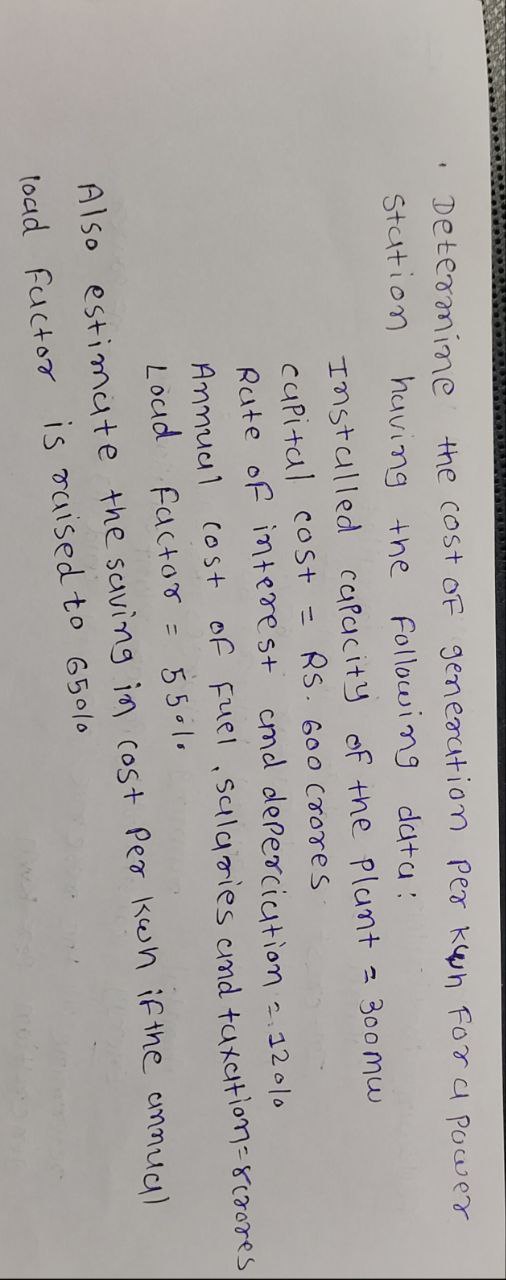 . Determine the cost of generation per kwh for a power
station having the following data:
Installed capacity of the plant = 300mw
capital cost = Rs. 600 crores
Rate of interest and deperciation = 12%
Annual cost of fuel, salaries and taxation = 8crores
Load factor = 55%
Also estimate the saving in cost per kwh if the annual
load factor is raised to 65%